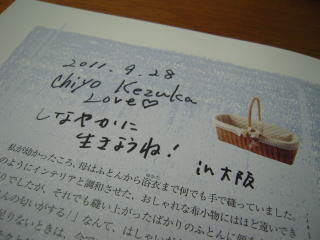 2011.9.28
Chiyo Kezuka
Love♡
しなやかに
生きようね！
in大阪
私が幼かったころ、母はふとんから浴衣まで何でも手で縫っていました。
のようにインテリアと調和させた、おしゃれな布小物にはほど遠いでき
りでしたが、それでも縫い上がったばかりのふとんに
んの匂いがする！」なんて、はしゃい
足りないときは、